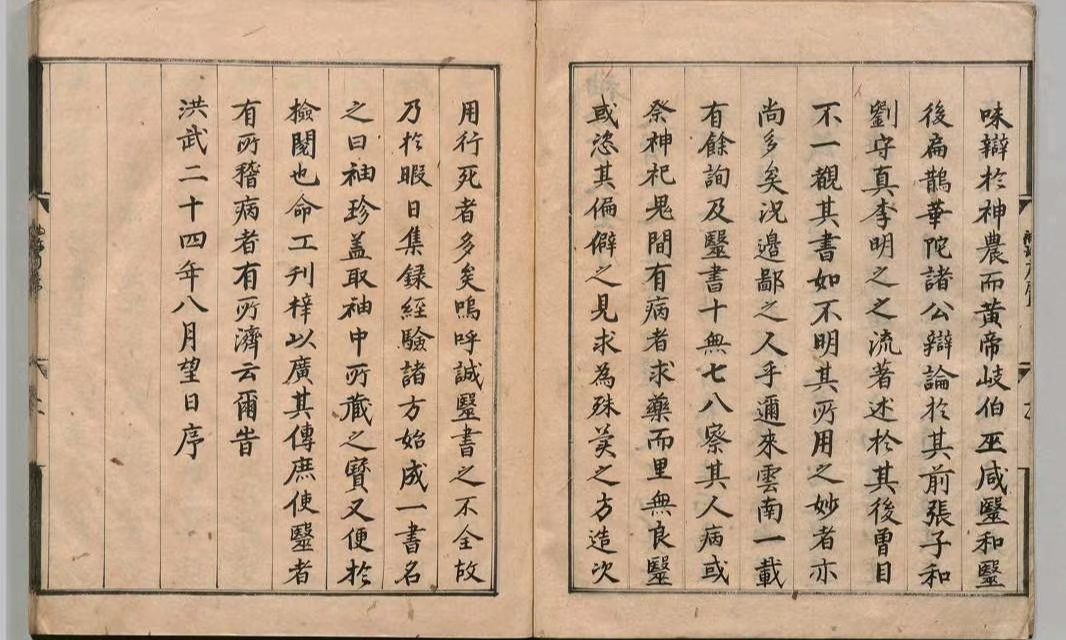 味辯於神農而黃帝岐伯巫咸毉和毉
後扁鵲華陀諸公辯論於其前張子和
劉守真李明之之流著述於其後曽目
不一覩其書如不明其所用之妙者亦
尚多矣況邉鄙之人乎邇來雲南一載
有餘詢及毉書十無七八察其人病或
祭神祀鬼間有病者求藥而里無良毉
或恣其偏僻之見求為殊異之方造次
用行死者多矣嗚呼誠毉書之不全故
乃於暇日集録經驗諸方始成一書名
之曰袖珍盖取袖中所蔵之寳又便於
檢閱也命工刋梓以廣其傳庶使毉者
有所稽病者有所濟云爾旹
洪武二十四年八月望日序